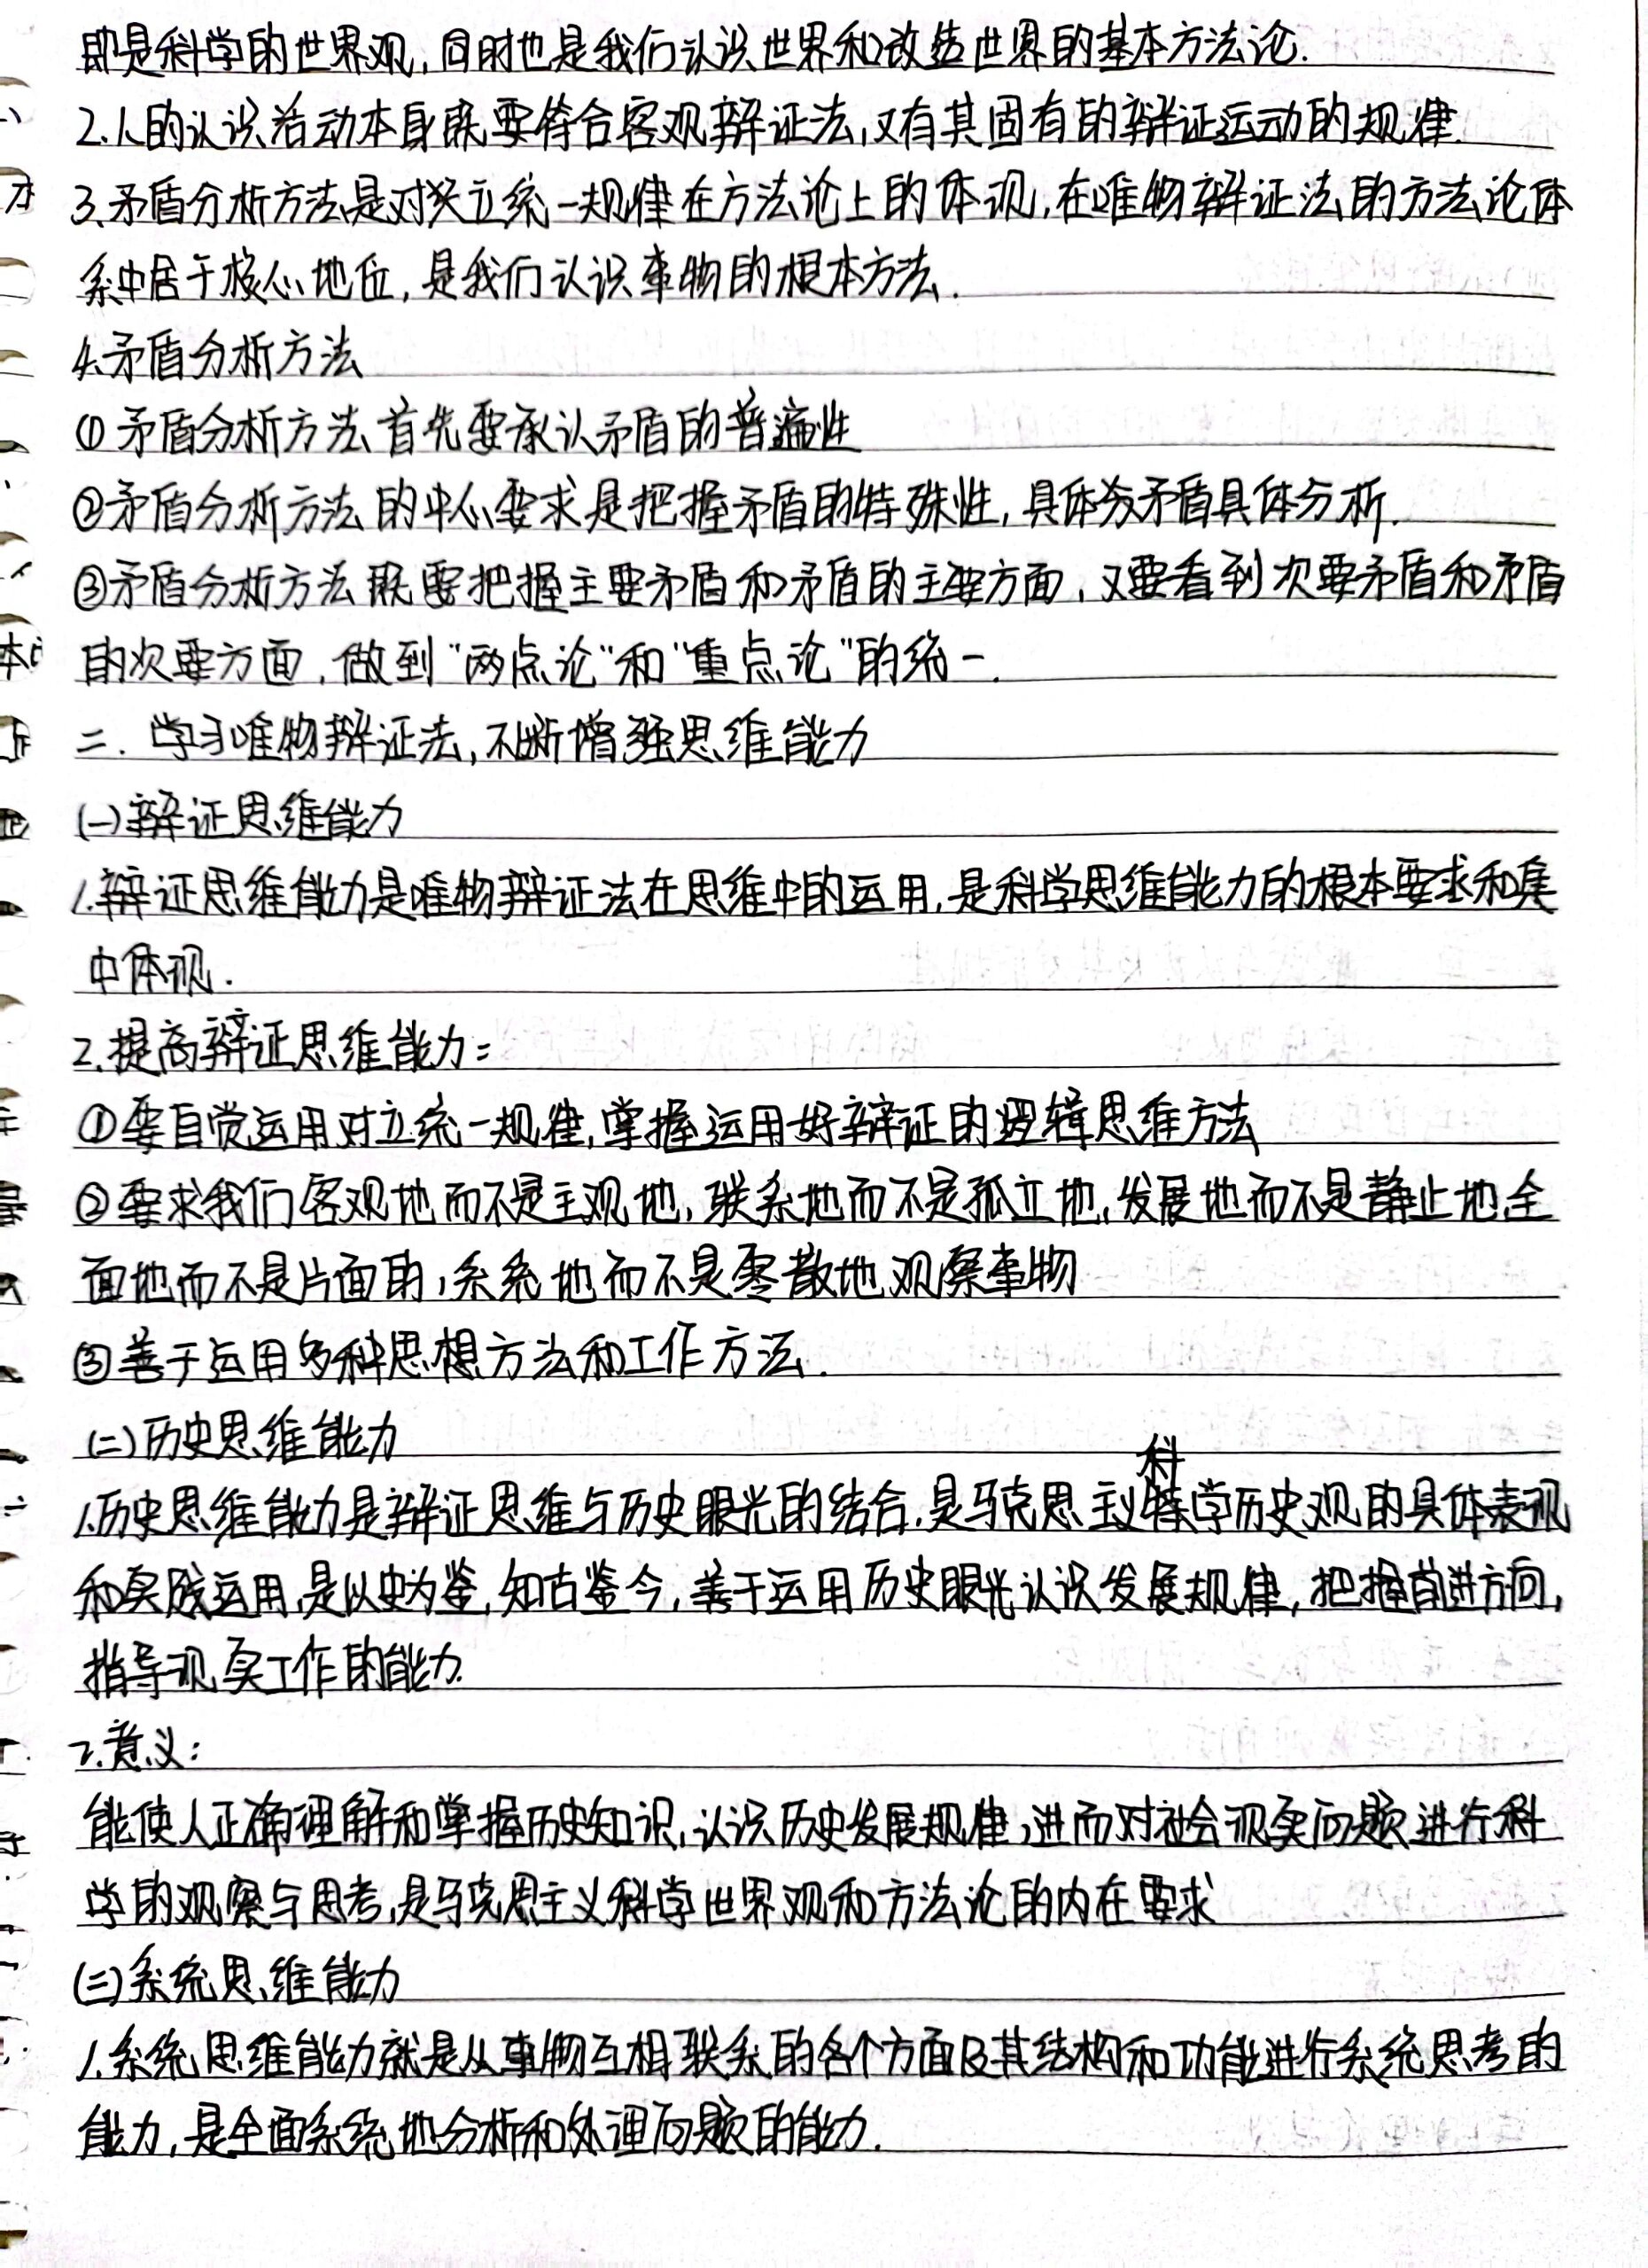 即是科学的世界观,同时也是我们认识世界和改造世界的基本方法论.
2.人的认识活动本身既要符合客观辩证法,又有其固有的辩证运动的规律.
3.矛盾分析方法是对立统一规律在方法论上的体现,在唯物辩证法的方法论体
系中居于核心地位,是我们认识事物的根本方法.
4.矛盾分析方法
①矛盾分析方法首先要承认矛盾的普遍性
②矛盾分析方法的中心要求是把握矛盾的特殊性,具体矛盾具体分析.
③矛盾分析方法既要把握主要矛盾和矛盾的主要方面,又要看到次要矛盾和矛盾
的次要方面,做到"两点论"和"重点论"的统一.
二.学习唯物辩证法,不断增强思维能力
(一)辩证思维能力
1.辩证思维能力是唯物辩证法在思维中的运用,是科学思维能力的根本要求和集
中体现.
2.提高辩证思维能力:
①要自觉运用对立统一规律,掌握运用好辩证的逻辑思维方法
②要求我们客观地而不是主观地,联系地而不是孤立地,发展地而不是静止地,全
面地而不是片面的,系系地而不是零散地观察事物
③善于运用多种思想方法和工作方法.
(二)历史思维能力
1.历史思维能力是辩证思维与历史眼光的结合,是马克思主义科学历史观的具体表现
和实践运用,是以史为鉴,知古鉴今,善于运用历史眼光认识发展规律,把握前进方向,
指导现实工作的能力.
2.意义:
能使人正确理解和掌握历史知识,认识历史发展规律,进而对社会现实问题进行科
学的观察与思考,是马克思主义科学世界观和方法论的内在要求
(三)系统思维能力
1.系统思维能力就是从事物互相联系的各个方面及其结构和功能进行系统思考的
能力,是全面系统地分析和处理问题的能力.